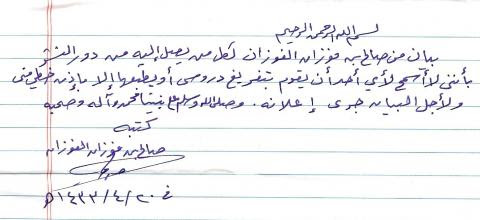 بسم الله الرحمن الرحيم
بيان من صالح بن فوزان الفوزان لكل من يصل إليه من دور النشر
بأنني لا أسمح لأي أحد أن يقوم بتفريغ دروسي أو يطبعها إلا بإذن خطي مني
ولأجل البيان جرى إعلانه. وصلى الله وسلم على نبينا محمد وآله وصحبه
كتبه
صالح بن فوزان الفوزان
في ٢٠/٤/١٤٣٣ه